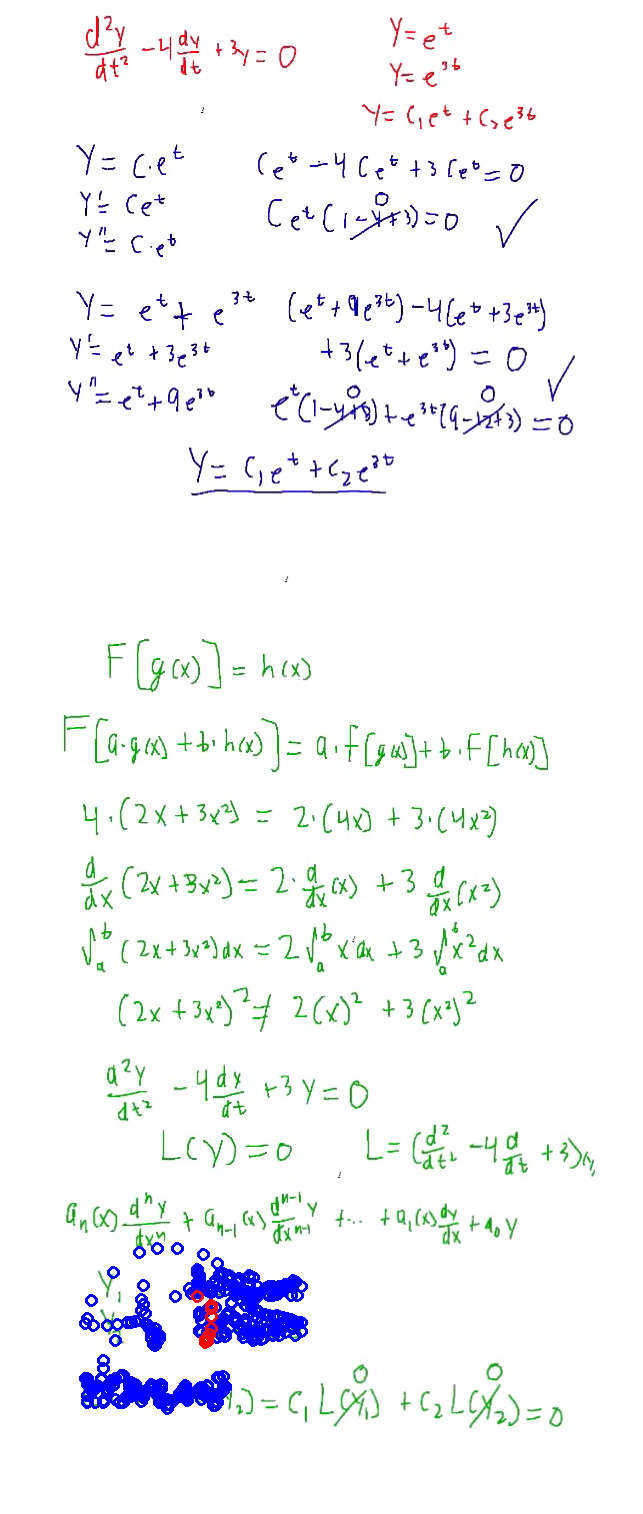 d²y/dt² - 4 dy/dt + 3y = 0
y = e^t
y = e^3t
y = C₁e^t + C₂e^3t
y = C·e^t
y' = Ce^t
y'' = C·e^t
Ce^t - 4Ce^t + 3Ce^t = 0
Ce^t(1-4+3) = 0 ✓
0
y = e^t + e^3t
y' = e^t + 3e^3t
y'' = e^t + 9e^3t
(e^t + 9e^3t) - 4(e^t + 3e^3t)
+3(e^t + e^3t) = 0 ✓
0 0
e^t(1-4+3) + e^3t(9-12+3) = 0
y = C₁e^t + C₂e^3t
F[g(x)] = h(x)
F[a·g(x) + b·h(x)] = a·F[g(x)] + b·F[h(x)]
4·(2x + 3x²) = 2·(4x) + 3·(4x²)
d/dx (2x + 3x²) = 2·d/dx (x) + 3 d/dx (x²)
∫_a^b (2x + 3x²)dx = 2∫_a^b x dx + 3∫_a^b x² dx
(2x + 3x²)² ≠ 2(x)² + 3(x²)²
d²y/dt² - 4 dy/dt + 3y = 0
L(y) = 0 L = (d²/dt² - 4 d/dt + 3)
a_n(x) d^n y/dx^n + a_{n-1}(x) d^{n-1}y/dx^{n-1} + ... + a₁(x) dy/dx + a₀y
y₁
0 0
y₂) = C₁L(y₁) + C₂L(y₂) = 0